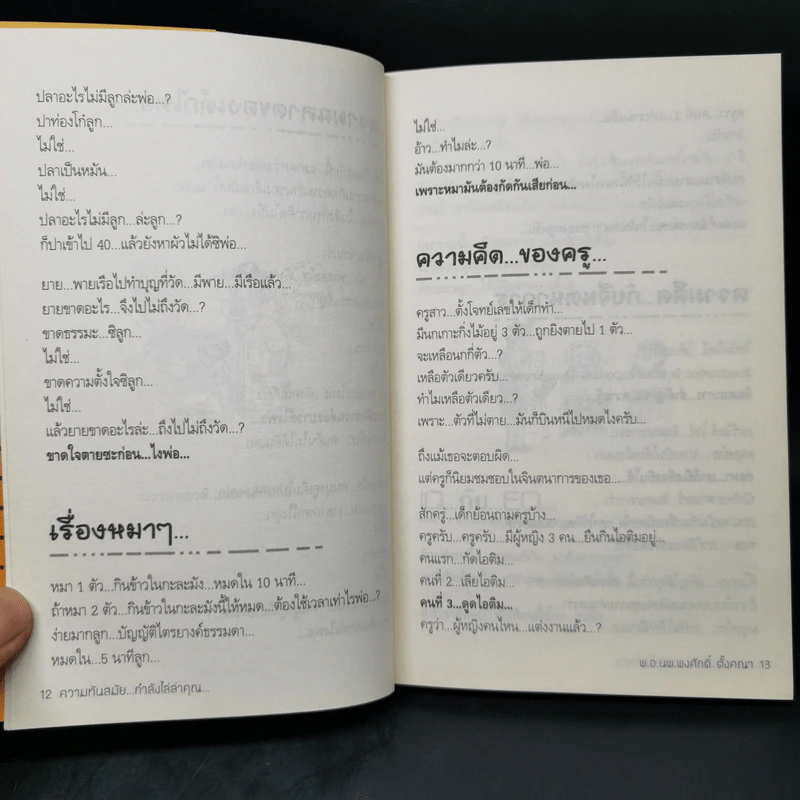 ปลาอะไรไม่มีลูกล่ะพ่อ...?
ปาท่องโก๋ลูก...
ไม่ใช่...
ปลาเป็นหมัน...
ไม่ใช่...
ปลาอะไรไม่มีลูก...ล่ะลูก...?
ก็ปาเข้าไป 40...แล้วยังหาผัวไม่ได้ซิพ่อ...
ยาย...พายเรือไปทำบุญที่วัด...มีพาย...มีเรือแล้ว...
ยายขาดอะไร...จึงไปไม่ถึงวัด...?
ขาดธรรมะ...ซิลูก...
ไม่ใช่...
ขาดความตั้งใจซิลูก...
ไม่ใช่...
แล้วยายขาดอะไรล่ะ...ถึงไปไม่ถึงวัด...?
ขาดใจตายซะก่อน...ไงพ่อ...
เรื่องหมาๆ...
หมา 1 ตัว...กินข้าวในกะละมัง...หมดใน 10 นาที...
ถ้าหมา 2 ตัว...กินข้าวในกะละมังนี้ให้หมด...ต้องใช้เวลาเท่าไรพ่อ...?
ง่ายมากลูก...บัญญัติไตรยางค์ธรรมดา...
หมดใน...5 นาทีลูก...
12 ความทันสมัย...กำลังไล่ล่าคุณ...
ไม่ใช่...
อ้าว...ทำไมล่ะ...?
มันต้องมากกว่า 10 นาที...พ่อ...
เพราะหมามันต้องกัดกันเสียก่อน...
ความคิด...ของครู...
ครูสาว...ตั้งโจทย์เลขให้เด็กทำ...
มีนกเกาะกิ่งไม้อยู่ 3 ตัว...ถูกยิงตายไป 1 ตัว...
จะเหลือนกกี่ตัว...?
เหลือตัวเดียวครับ...
ทำไมเหลือตัวเดียว...?
เพราะ...ตัวที่ไม่ตาย...มันก็บินหนีไปหมดไงครับ...
ถึงแม้เธอจะตอบผิด...
แต่ครูก็นิยมชมชอบในจินตนาการของเธอ...
สักครู่...เด็กย้อนถามครูบ้าง...
ครูครับ...ครูครับ...มีผู้หญิง 3 คน...ยืนกินไอติมอยู่...
คนแรก...กัดไอติม...
คนที่ 2...เลียไอติม...
คนที่ 3...ดูดไอติม...
ครูว่า...ผู้หญิงคนไหน...แต่งงานแล้ว...?
พ.อ.นพ.พงศักดิ์ ตั้งคณา 13